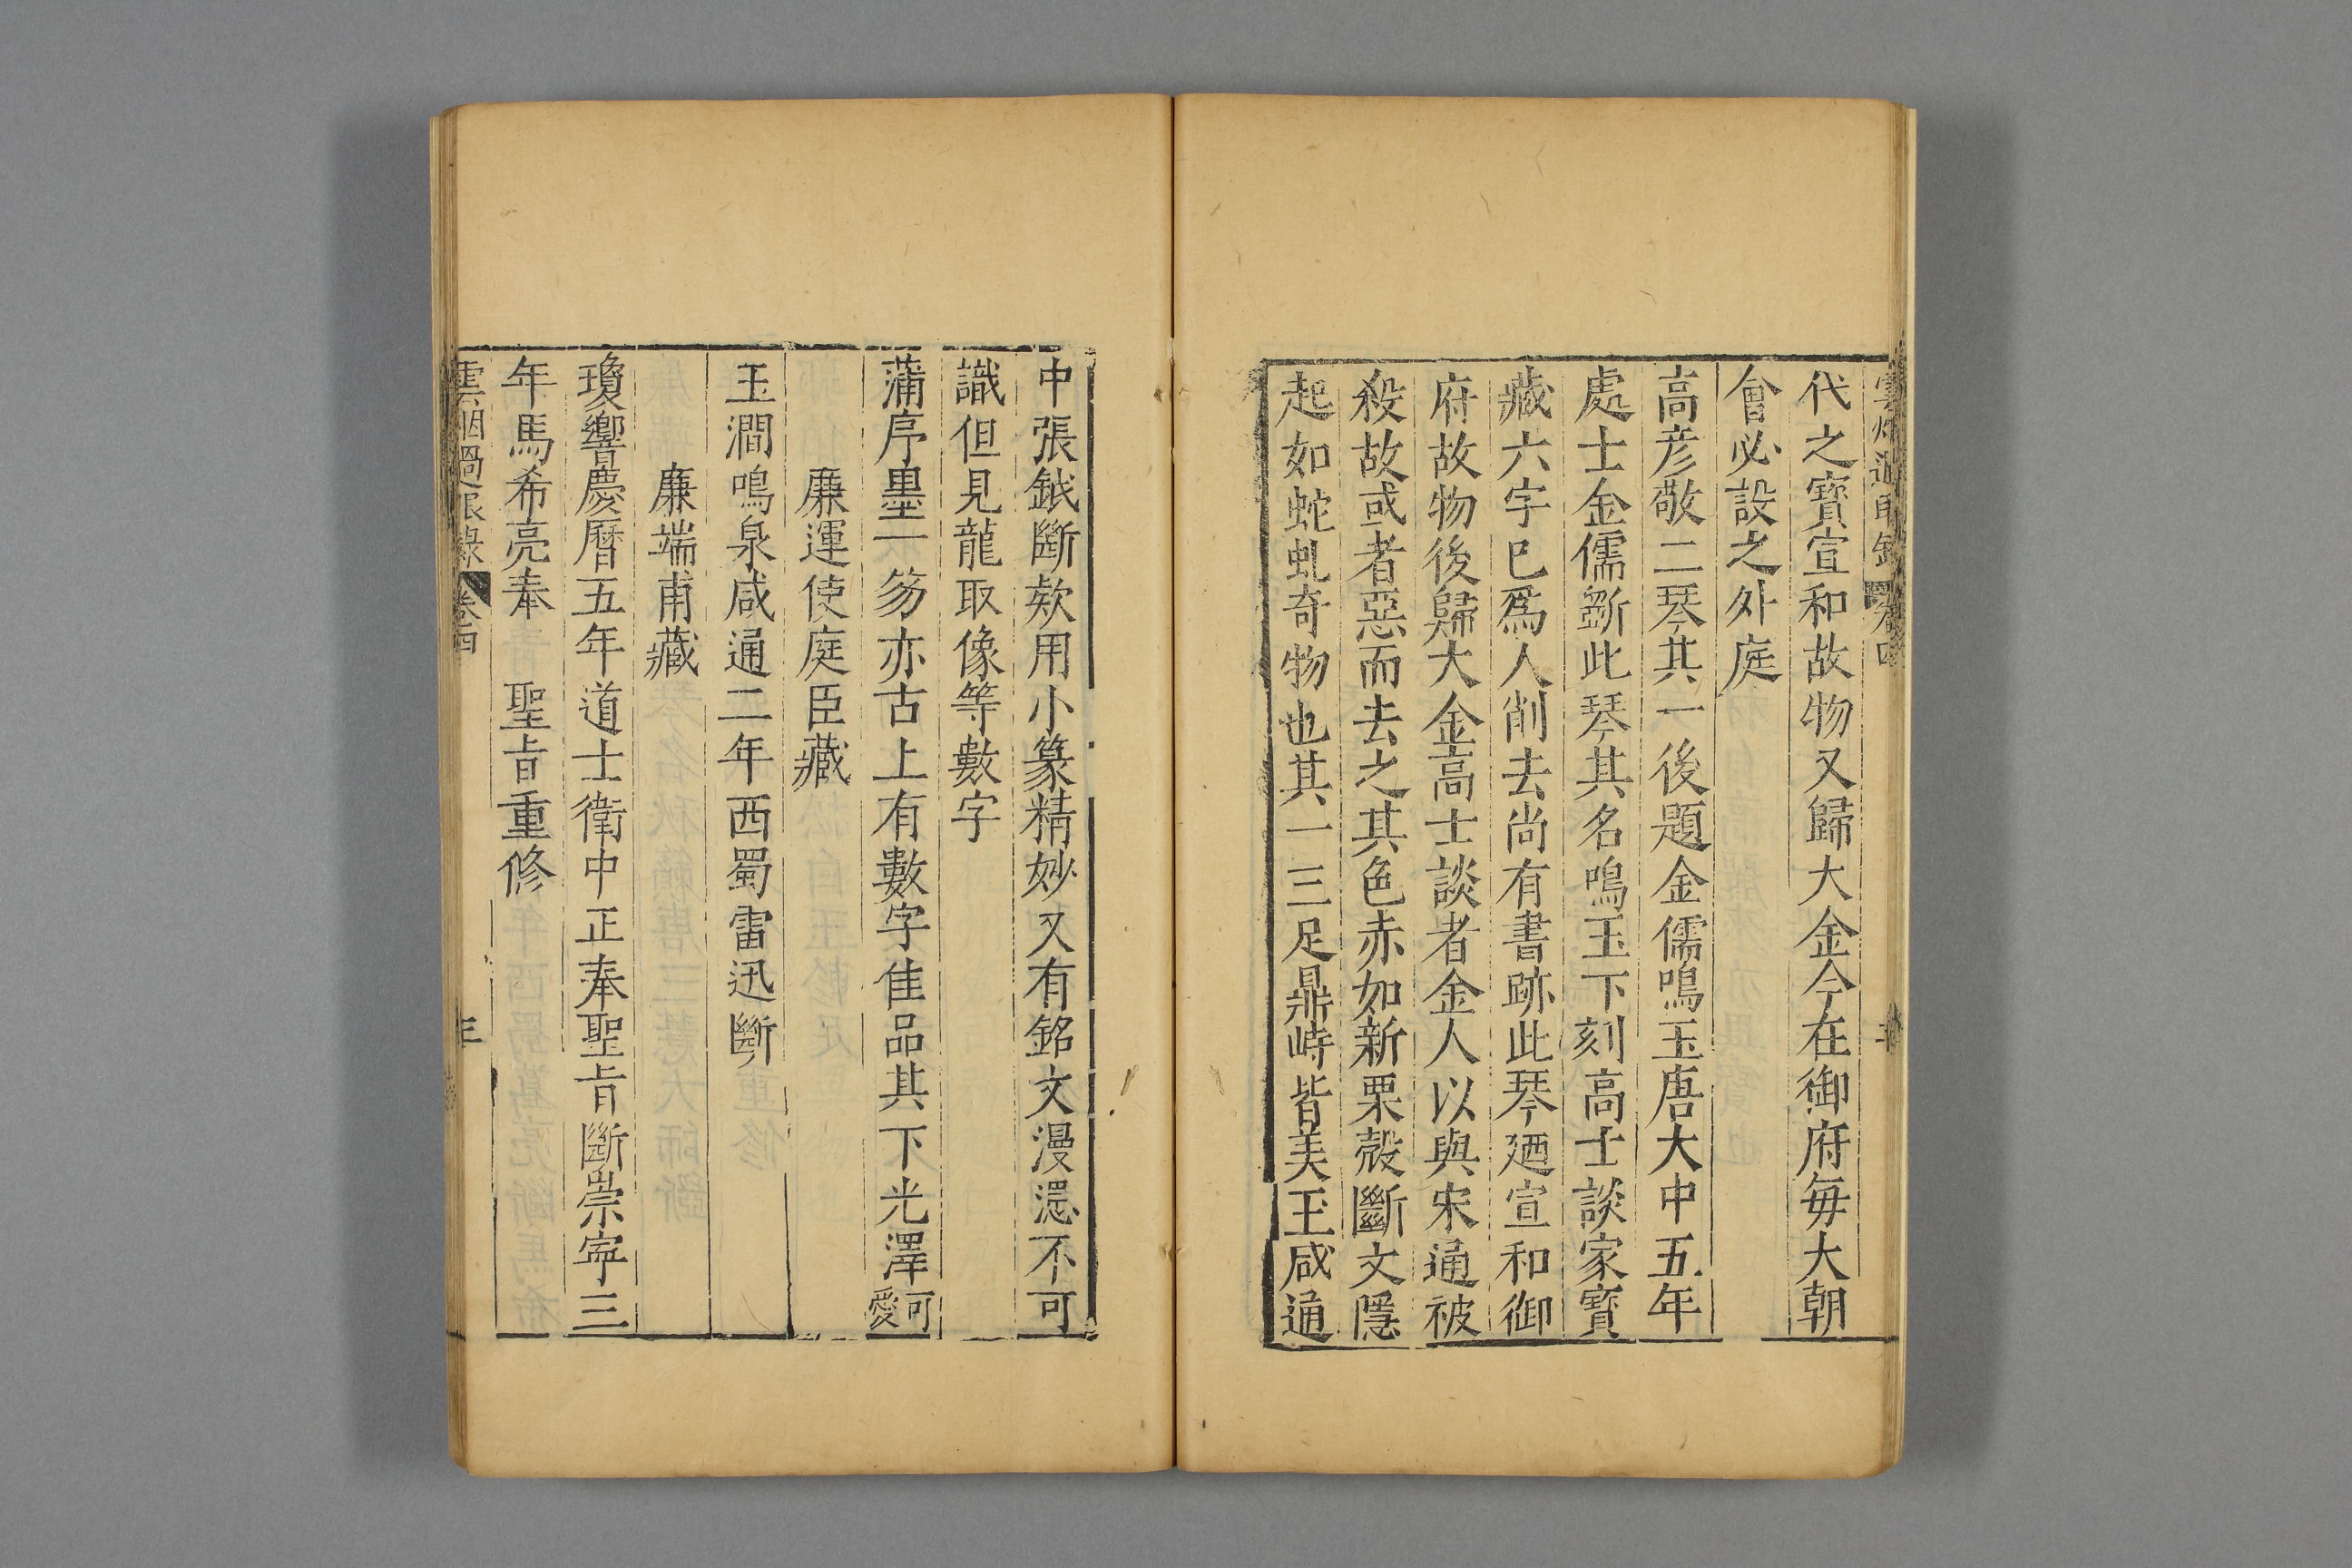 雲烟過眼錄 卷四
代之寳宣和故物又歸大金今在御府毎大朝
會必設之外庭
高彦敬二琴其一後題金儒鳴玉唐大中五年
處士金儒斲此琴其名鳴玉下刻高士談家寳
藏六字已爲人削去尚有書跡此琴廼宣和御
府故物後歸大金高士談者金人以與宋通被
殺故或者惡而去之其色赤如新栗殻斷文隱
起如蛇虬奇物也其一三足鼎峙皆美玉咸通
中張鉞斷欵用小篆精妙又有銘文漫漶不可
識但見龍取像等數字
蒲序墨一笏亦古上有數字佳品其下光澤可愛
廉運使庭臣藏
玉澗鳴泉咸通二年西蜀雷迅斷
廉端甫藏
瓊響慶曆五年道士衛中正奉聖旨斷崇寧三
年馬希亮奉 聖旨重修
雲烟過眼錄 卷四 三